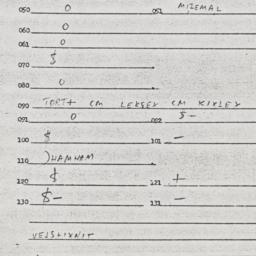 050 0 051 MIZEMAL
060 0
061 0
070 $
080 0
090 TORT+ CM LEKSEX CM KIXLEX
091 0 092 $-
100 $ 101 -
110 )HAMHAM
120 $ 121 +
130 $- 131 -